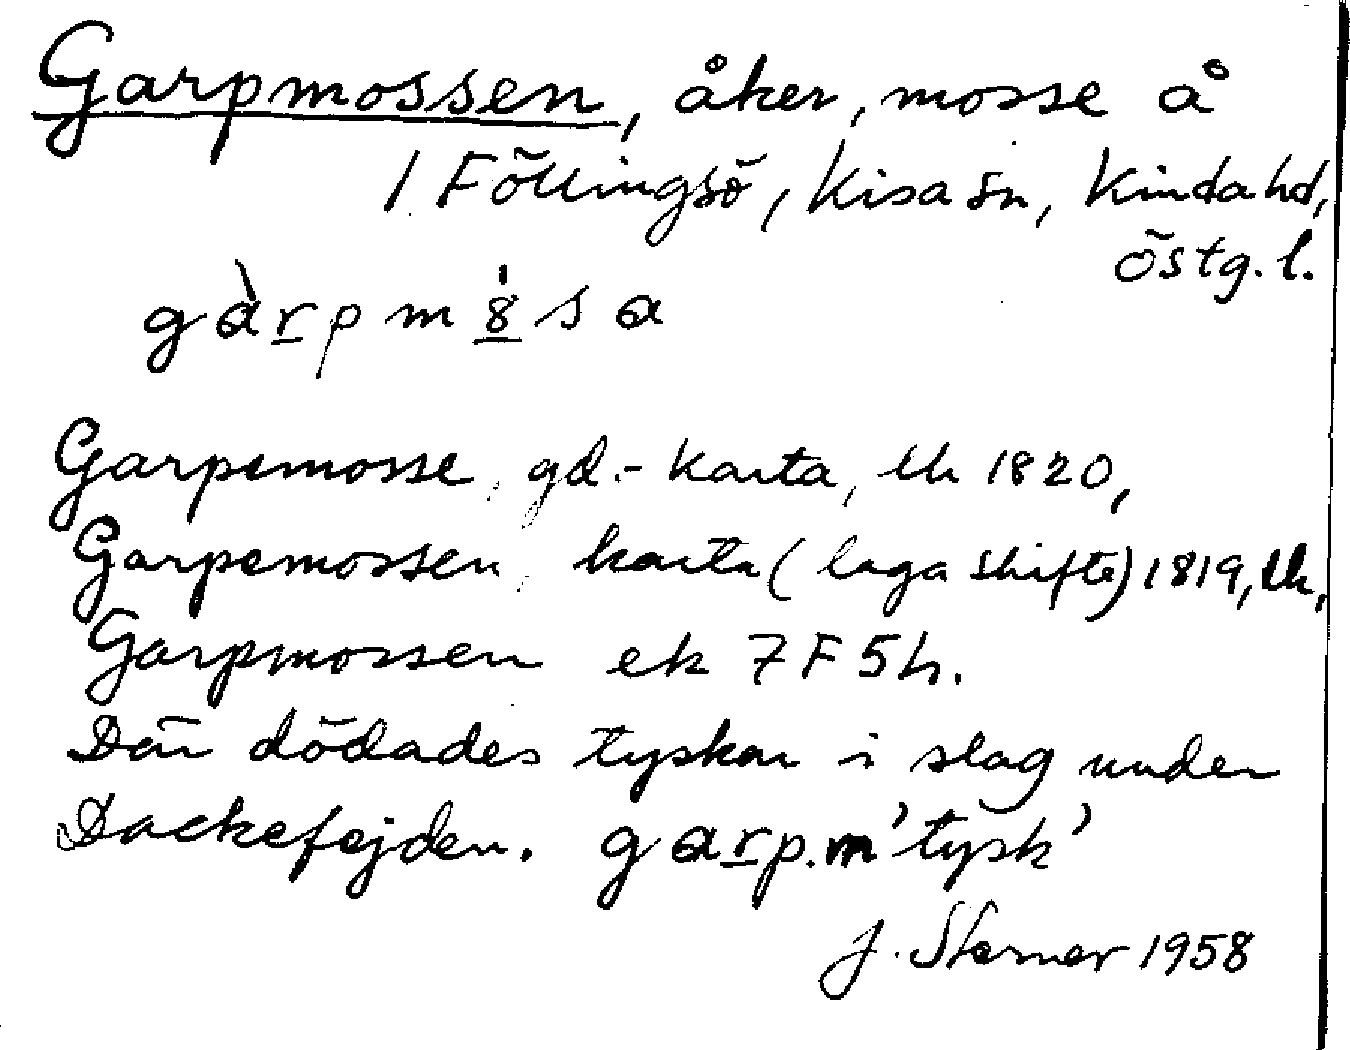 Garpmossen, åker, mosse å
1 Föllingsö, Kisa sn, Kinda hd,
Östg. l.
gàrpm8̍sa
Garpemosse, gd.-karta, lk 1820,
Garpemossen, karta (laga skifte) 1819, lk,
Garpmossen ek 7F5h.
Där dödades tyskar i slag under
Dackefejden. garp.m 'tysk'
J. Sterner 1958